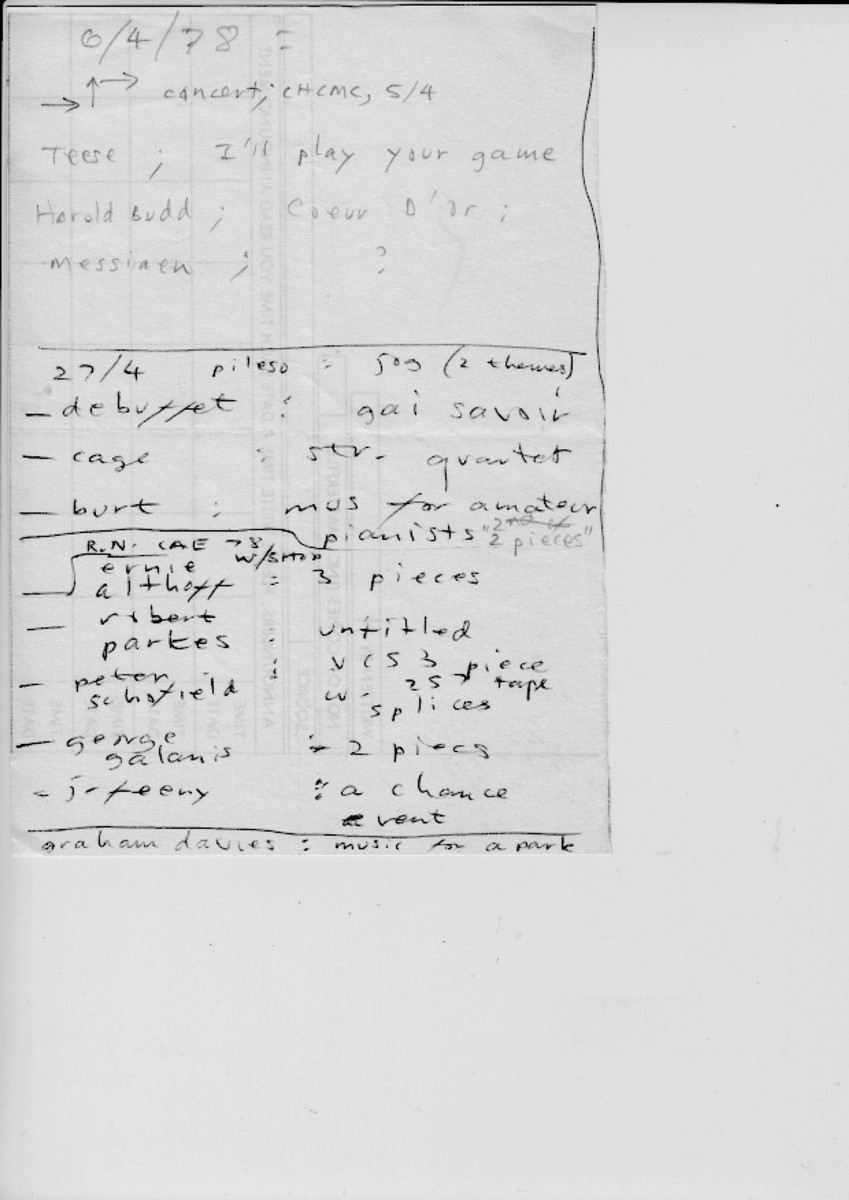 6/4/78 =
→ ↑ → concert; CHCMC, 5/4
Teese ; I'll play your game
Harold Budd ; Coeur D'or ;
Messiaen ; ?
27/4 pileso : 509 (2 themes)
— debuffet : gai savoir
— cage : str. quartet
— burt : mus for amateur
pianists "2nd of
2 pieces"
R.N. CAE 78
W/SHOP
ernie
althoff = 3 pieces
— robert
parkes : untitled
— peter : VCS3 piece
schofield w. 257 tape
splices
— george
galanis : 2 piecs
- j. feeny : a chance
event
graham davies : music for a park